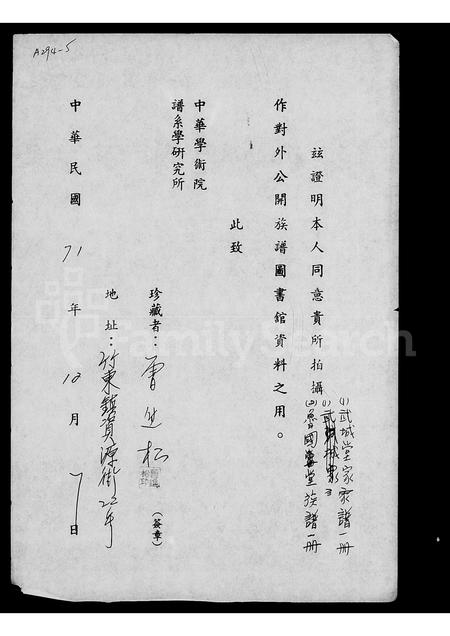 A294-5
茲證明本人同意貴所拍攝
(1)武城堂家譜一冊
(2)魯國堂族譜一冊
作對外公開族譜圖書館資料之用。
此致
中華學術院
譜系學研究所
珍藏者：曾進松
（簽章）
地址：竹東鎮資源街22号
中華民國71年12月7日
FamilySearch